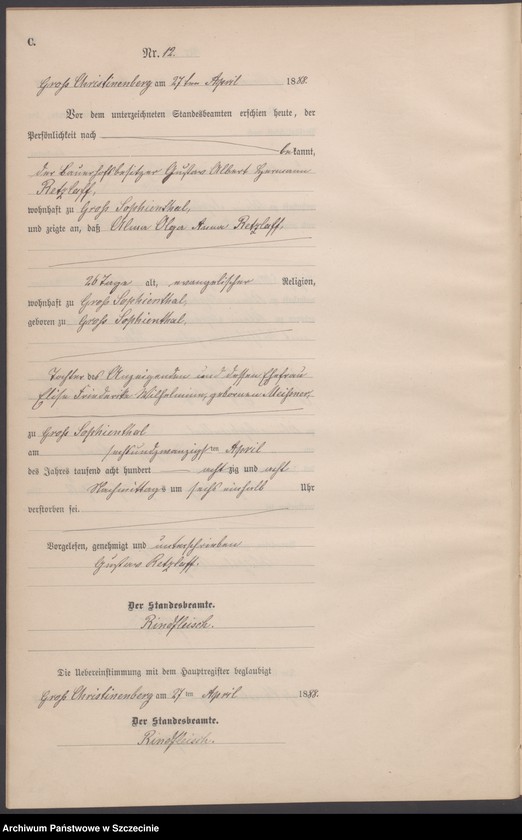 C.
Nr. 12.
Groß Christinenberg am 27ten April 1888.
Vor dem unterzeichneten Standesbeamten erschien heute, der
Persönlichkeit nach
bekannt,
der Bauerhofsbesitzer Gustav Albert Hermann
Retzlaff,
wohnhaft zu Groß Sophienthal,
und zeigte an, daß Alma Olga Anna Retzlaff,
26 Tage alt, evangelischer Religion,
wohnhaft zu Groß Sophienthal,
geboren zu Groß Sophienthal,
Tochter des Anzeigenden und dessen Ehefrau
Elise Friederike Wilhelmine, gebornen Meißner,
zu Groß Sophienthal
am sechsundzwanzigsten April
des Jahres tausend acht hundert achtzig und acht
Nachmittags um sechs einhalb Uhr
verstorben sei.
Vorgelesen, genehmigt und unterschrieben
Gustav Retzlaff.
Der Standesbeamte.
Rindfleisch.
Die Uebereinstimmung mit dem Hauptregister beglaubigt
Groß Christinenberg am 27ten April 1888.
Der Standesbeamte.
Rindfleisch.
Archiwum Państwowe w Szczecinie